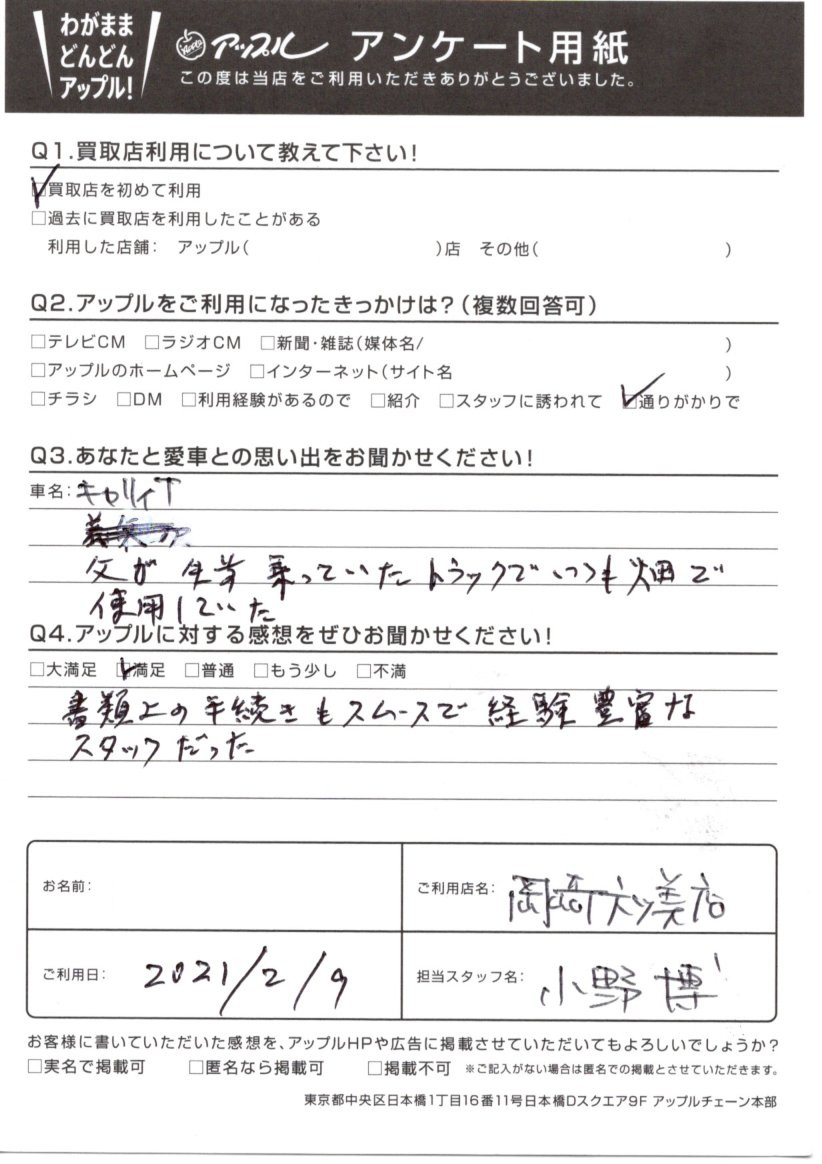 わがまま
どんどん
アップル!
アップル アンケート用紙
この度は当店をご利用いただきありがとうございました。
Q1.買取店利用について教えて下さい!
☑買取店を初めて利用
□過去に買取店を利用したことがある
利用した店舗: アップル( )店 その他( )
Q2.アップルをご利用になったきっかけは?(複数回答可)
□テレビCM □ラジオCM □新聞・雑誌(媒体名/ )
□アップルのホームページ □インターネット(サイト名 )
□チラシ □DM □利用経験があるので □紹介 □スタッフに誘われて ☑通りがかりで
Q3.あなたと愛車との思い出をお聞かせください!
車名: キャリイT
父が 生前 乗っていた トラックで いつも 畑で
使用していた
Q4.アップルに対する感想をぜひお聞かせください!
□大満足 ☑満足 □普通 □もう少し □不満
書類上の手続きもスムースで 経験 豊富な
スタッフだった
お名前:
ご利用店名: 岡崎六ツ美店
ご利用日: 2021/2/9
担当スタッフ名: 小野 博
お客様に書いていただいた感想を、アップルHPや広告に掲載させていただいてもよろしいでしょうか?
□実名で掲載可 □匿名なら掲載可 □掲載不可 ※ご記入がない場合は匿名での掲載とさせていただきます。
東京都中央区日本橋1丁目16番11号日本橋Dスクエア9F アップルチェーン本部